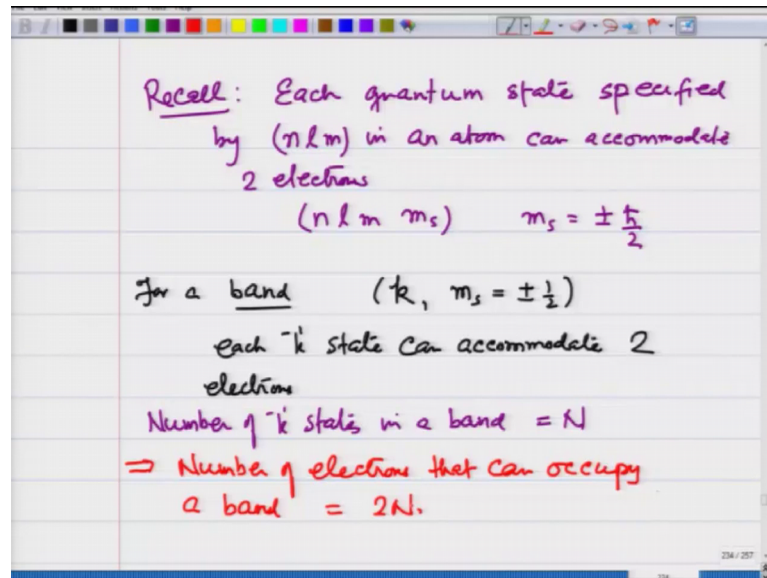 Recall: Each quantum state specified
by (n l m) in an atom can accommodate
2 electrons
(n l m mₛ) mₛ = ± ħ/2
For a band (k, mₛ = ± ½)
each 'k' state can accommodate 2
electrons
Number of 'k' states in a band = N
⇒ Number of electrons that can occupy
a band = 2N.
234 / 257